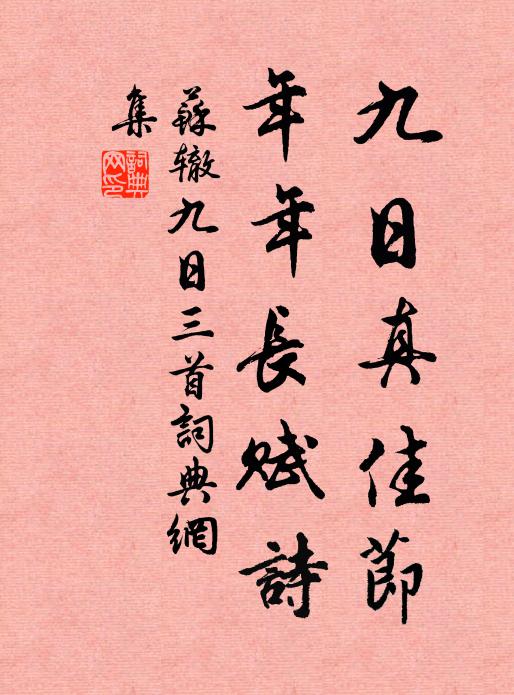 九日真佳節
年年長赋詩
蘇辙九日三首詞典網
集
詞典
网印